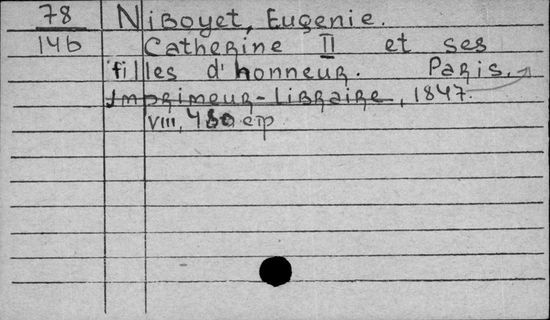 78 Niboyet, Eugenie.
146 Catherine II et ses
filles d'honneur. Paris,
Imprimeur-Libraire, 1847.
VIII, 480 стр